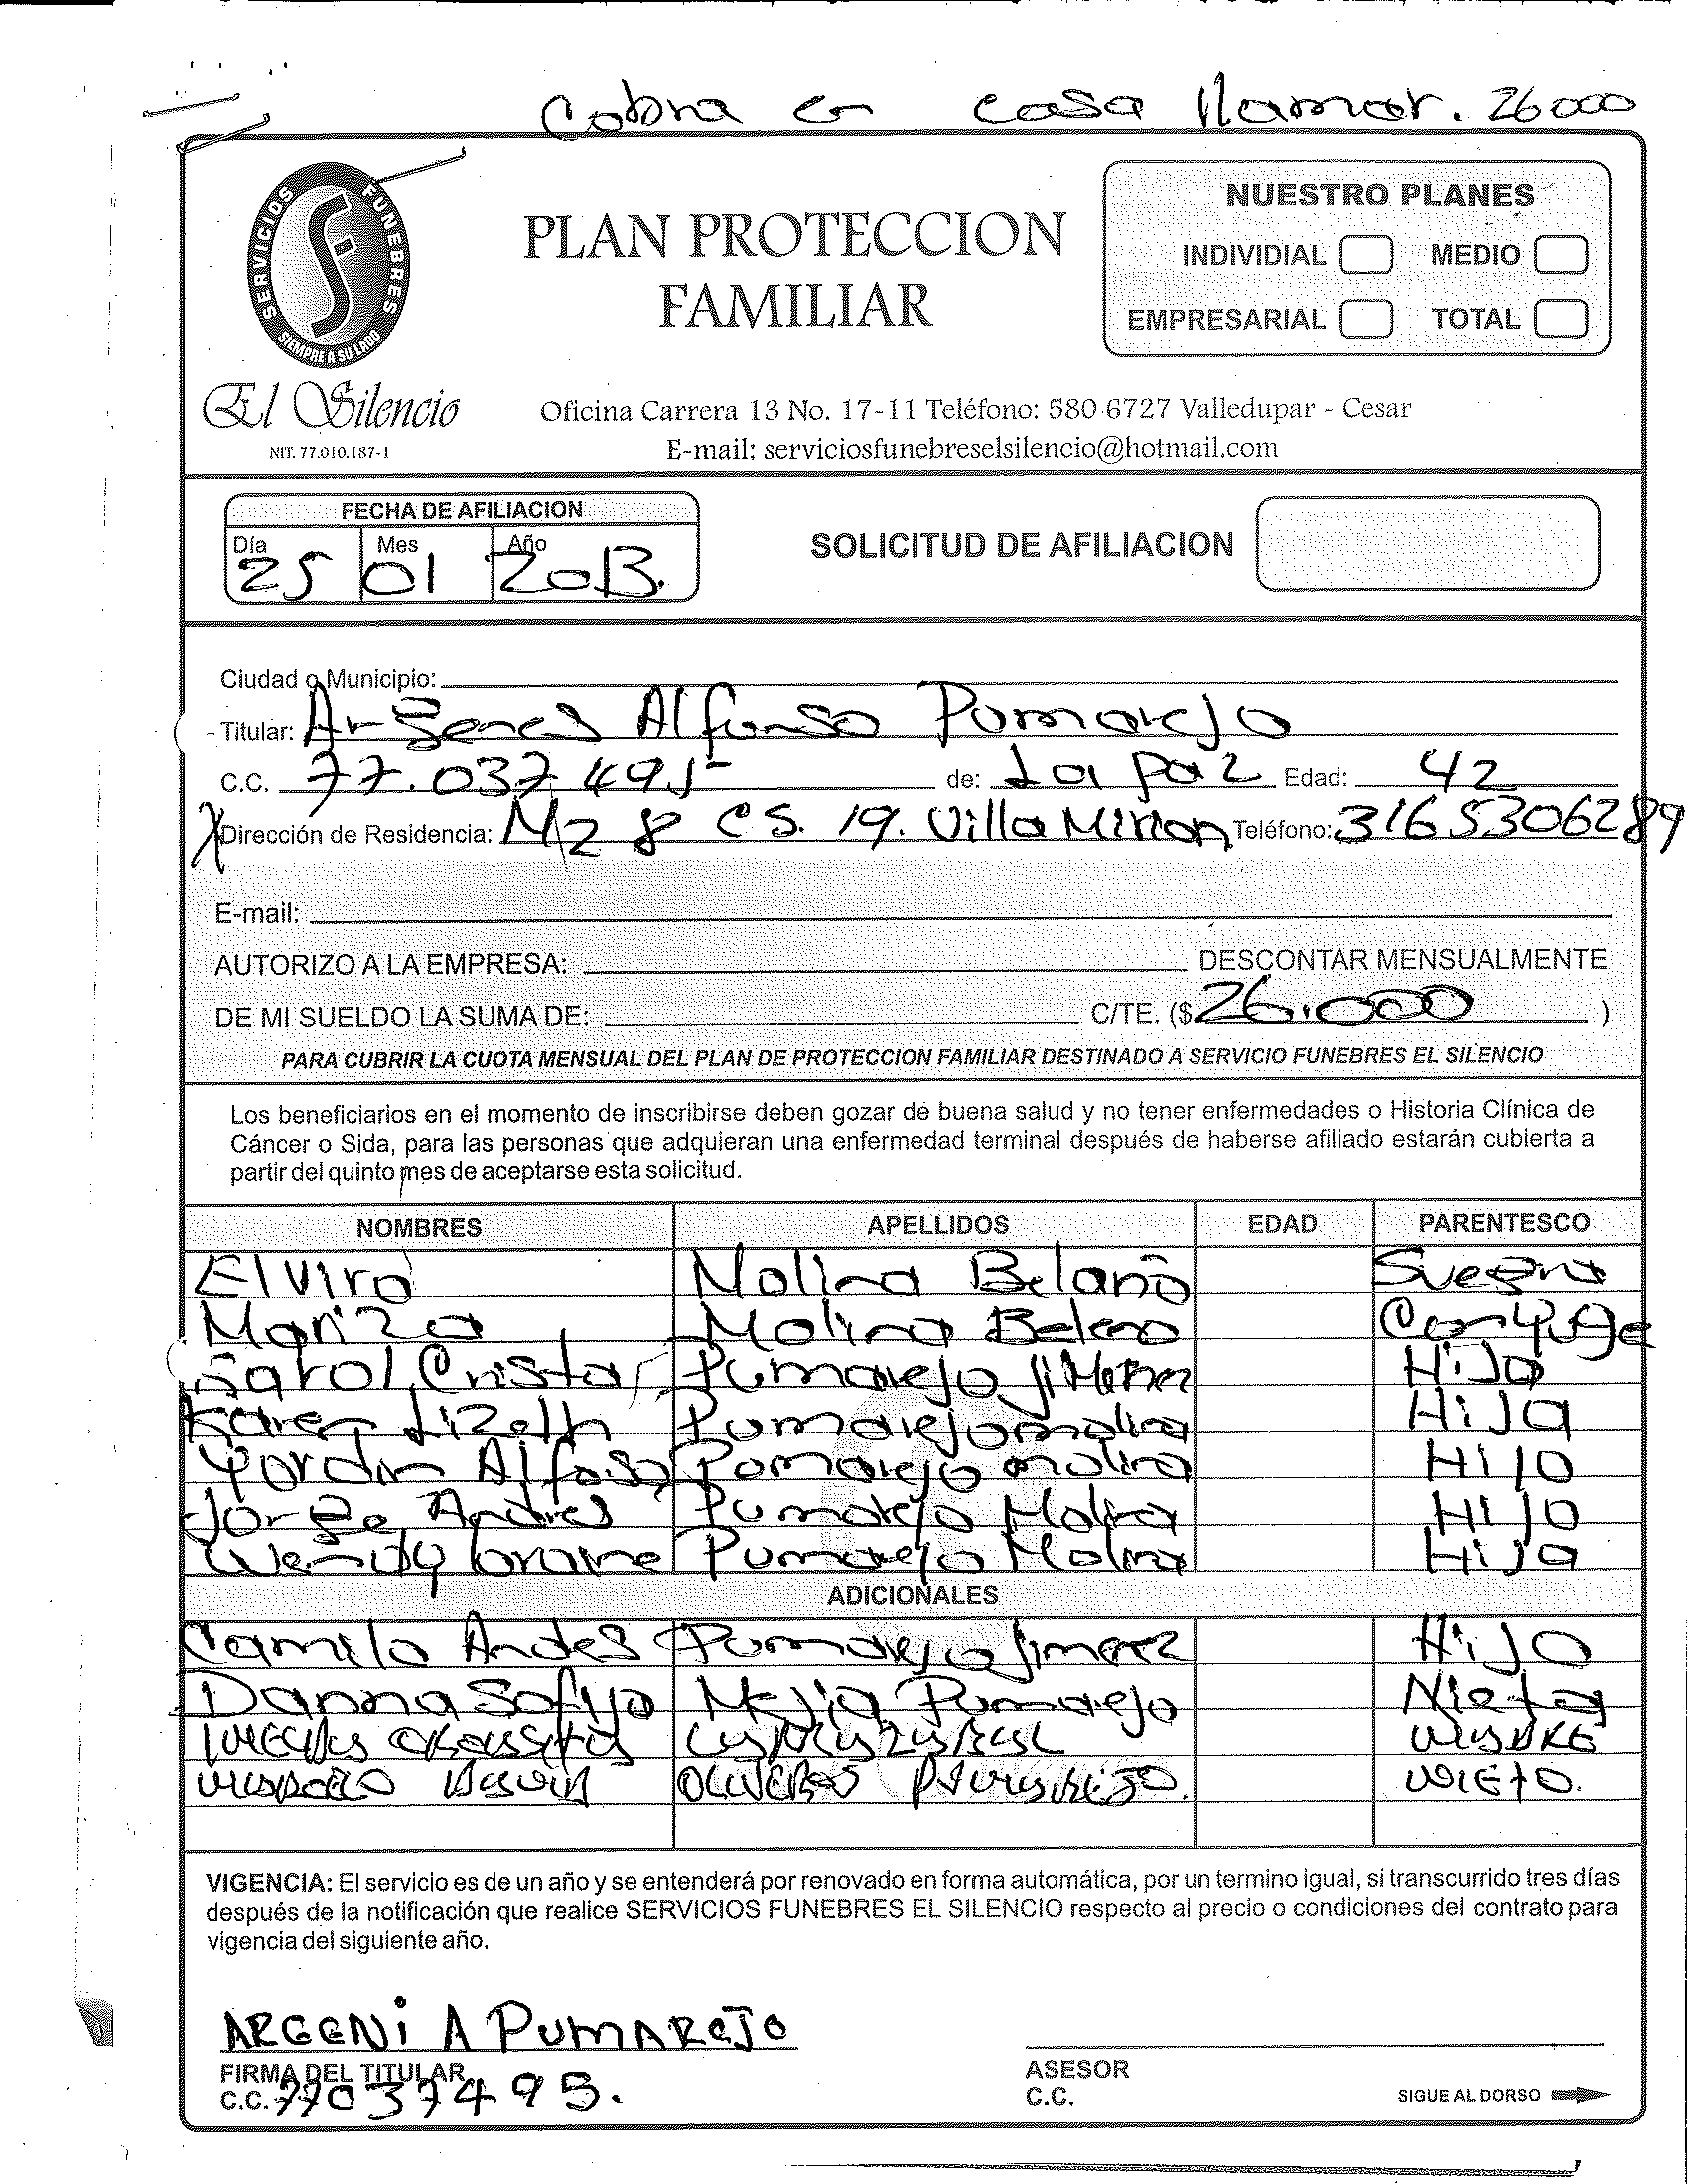 Cobra en casa llamar. 26000
SERVICIOS FUNEBRES
SIEMPRE A SU LADO
El Silencio
NIT. 77.010.187-1
PLAN PROTECCION
FAMILIAR
NUESTRO PLANES
INDIVIDIAL MEDIO
EMPRESARIAL TOTAL
Oficina Carrera 13 No. 17-11 Teléfono: 580 6727 Valledupar - Cesar
E-mail: serviciosfunebreselsilencio@hotmail.com
FECHA DE AFILIACION
Día Mes Año
25 01 2013.
SOLICITUD DE AFILIACION
Ciudad o Municipio:
Titular: Argenes Alfonso Pumarejo
C.C. 77.037.495 de: La paz Edad: 42
X Dirección de Residencia: Mz 8 CS. 19. Villa Mirian Teléfono: 3165306289
E-mail:
AUTORIZO A LA EMPRESA: DESCONTAR MENSUALMENTE
DE MI SUELDO LA SUMA DE: C/TE. ($ 26.000 )
PARA CUBRIR LA CUOTA MENSUAL DEL PLAN DE PROTECCION FAMILIAR DESTINADO A SERVICIO FUNEBRES EL SILENCIO
Los beneficiarios en el momento de inscribirse deben gozar de buena salud y no tener enfermedades o Historia Clínica de
Cáncer o Sida, para las personas que adquieran una enfermedad terminal después de haberse afiliado estarán cubierta a
partir del quinto mes de aceptarse esta solicitud.
NOMBRES APELLIDOS EDAD PARENTESCO
Elvira Molina Belaño Suegra
Mariza Molina Beleño Conyuge
Sarol Crista Pumarejo Jimenez Hija
Karen Lizeth Pumarejo molina Hija
Yordin Alfonso Pumarejo molina Hijo
Jorge Andres Pumarejo Molina Hijo
Wendy Pumarejo Molina Hija
ADICIONALES
Camilo Andes Pumarejo Jimenez Hijo
Danna Sofya Mejia Pumarejo Nieta
MADRE
OLIVEROS PUMAREJO. NIETO.
VIGENCIA: El servicio es de un año y se entenderá por renovado en forma automática, por un termino igual, si transcurrido tres días
después de la notificación que realice SERVICIOS FUNEBRES EL SILENCIO respecto al precio o condiciones del contrato para
vigencia del siguiente año.
ARGENI A PUMAREJO
FIRMA DEL TITULAR
C.C. 77037495.
ASESOR
C.C.
SIGUE AL DORSO